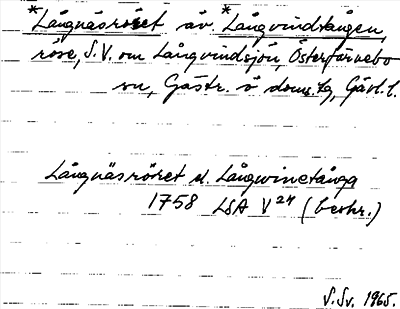 *Långnäsröset äv. *Långvindtången,
röse, S.V. om Långvindsjön, Österfärnebo
sn, Gästr. ö doms.lg, Gävl. l.
Långnäsröret el. Långwinetånga
1758 LSA V 24 (beskr.)
S. Sv. 1965.